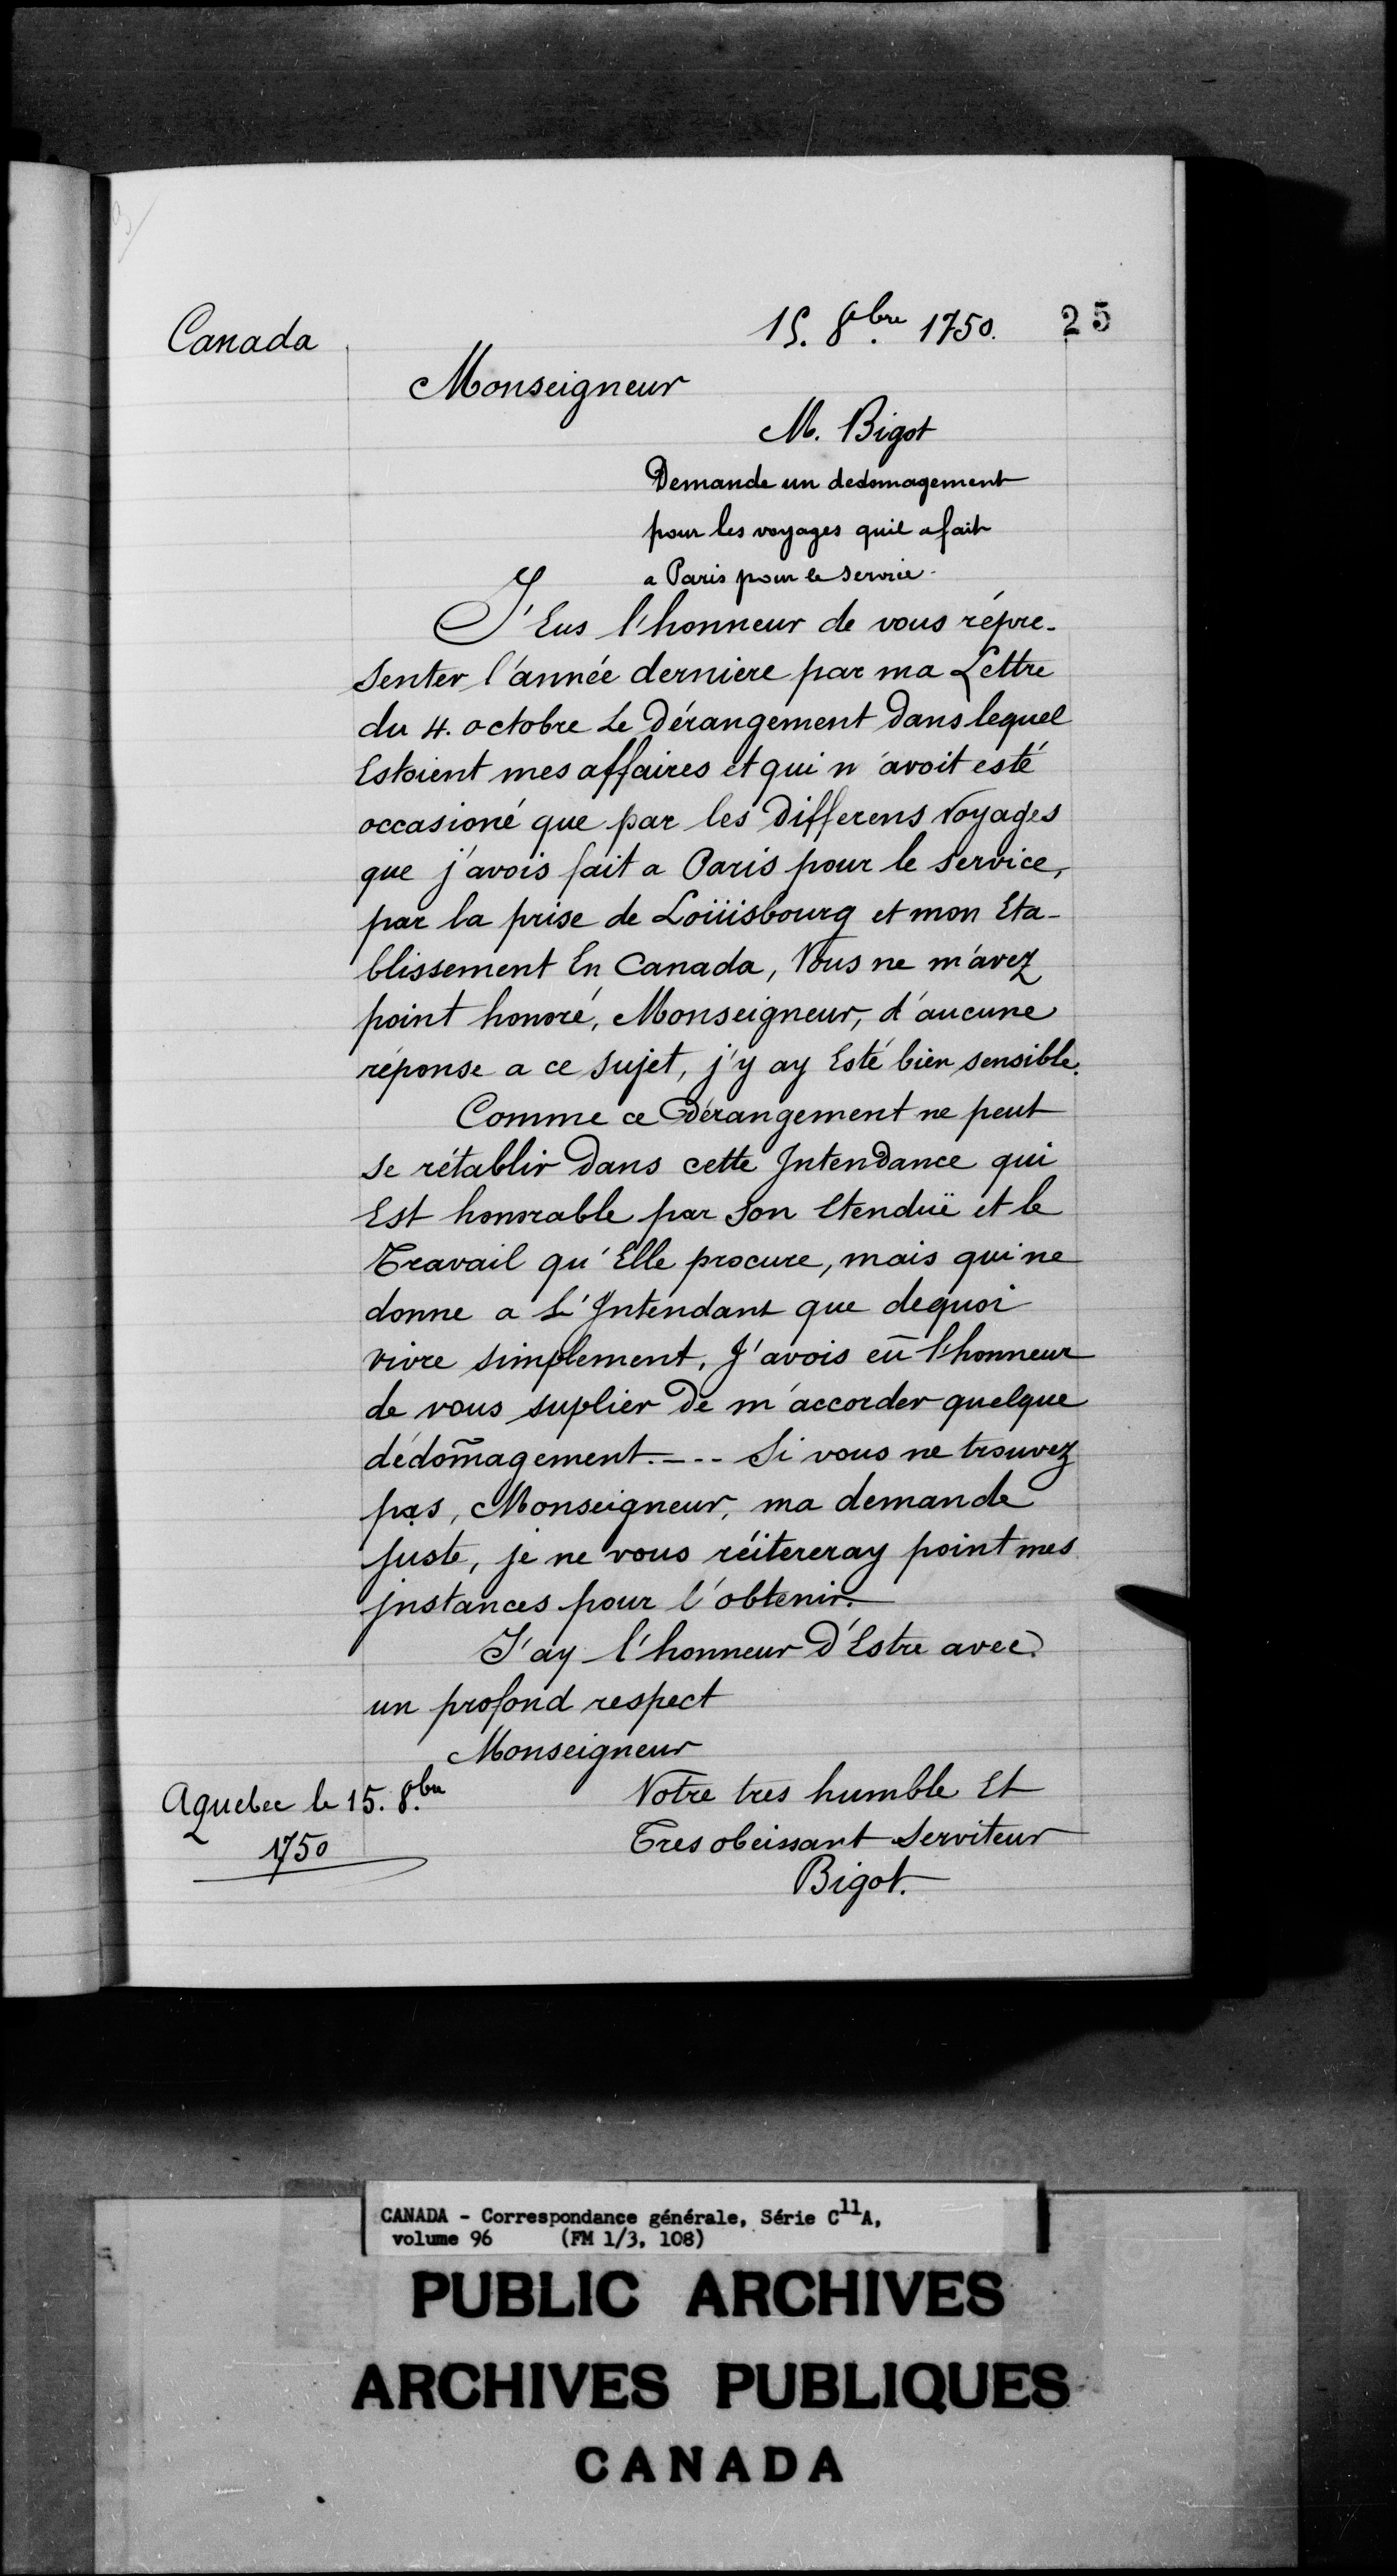 Canada
15. 8bre. 1750. 25
Monseigneur
M. Bigot
Demande un dedomagement
pour les voyages quil a fait
a Paris pour le service.
J'Eus l'honneur de vous répre-
senter l'année derniere par ma Lettre
du 4. octobre Le Dérangement Dans lequel
Estoient mes affaires et qui n'avoit esté
occasioné que par les Differens Voyages
que j'avois fait a Paris pour le service,
par la prise de Loüisbourg et mon Eta-
blissement En Canada, Vous ne m'avez
point honoré, Monseigneur, d'aucune
réponse a ce sujet, j'y ay Esté bien sensible.
Comme ce Dérangement ne peut
se rétablir Dans cette Intendance qui
Est honorable par son Etenduë et le
Travail qu'Elle procure, mais qui ne
donne a L'Intendant que dequoi
vivre simplement, J'avois eū l'honneur
de vous suplier De m'accorder quelque
dédom̃agement.--- Si vous ne trouvez
pas, Monseigneur, ma demande
juste, je ne vous réitereray point mes
jnstances pour l'obtenir.
J'ay l'honneur D'Estre avec
un profond respect
Monseigneur
Votre tres humble Et
Tres obeissant Serviteur
Bigot.
A quebec le 15. 8.bre
1750
CANADA - Correspondance générale, Série C11A,
volume 96 (FM 1/3, 108)
PUBLIC ARCHIVES
ARCHIVES PUBLIQUES
CANADA